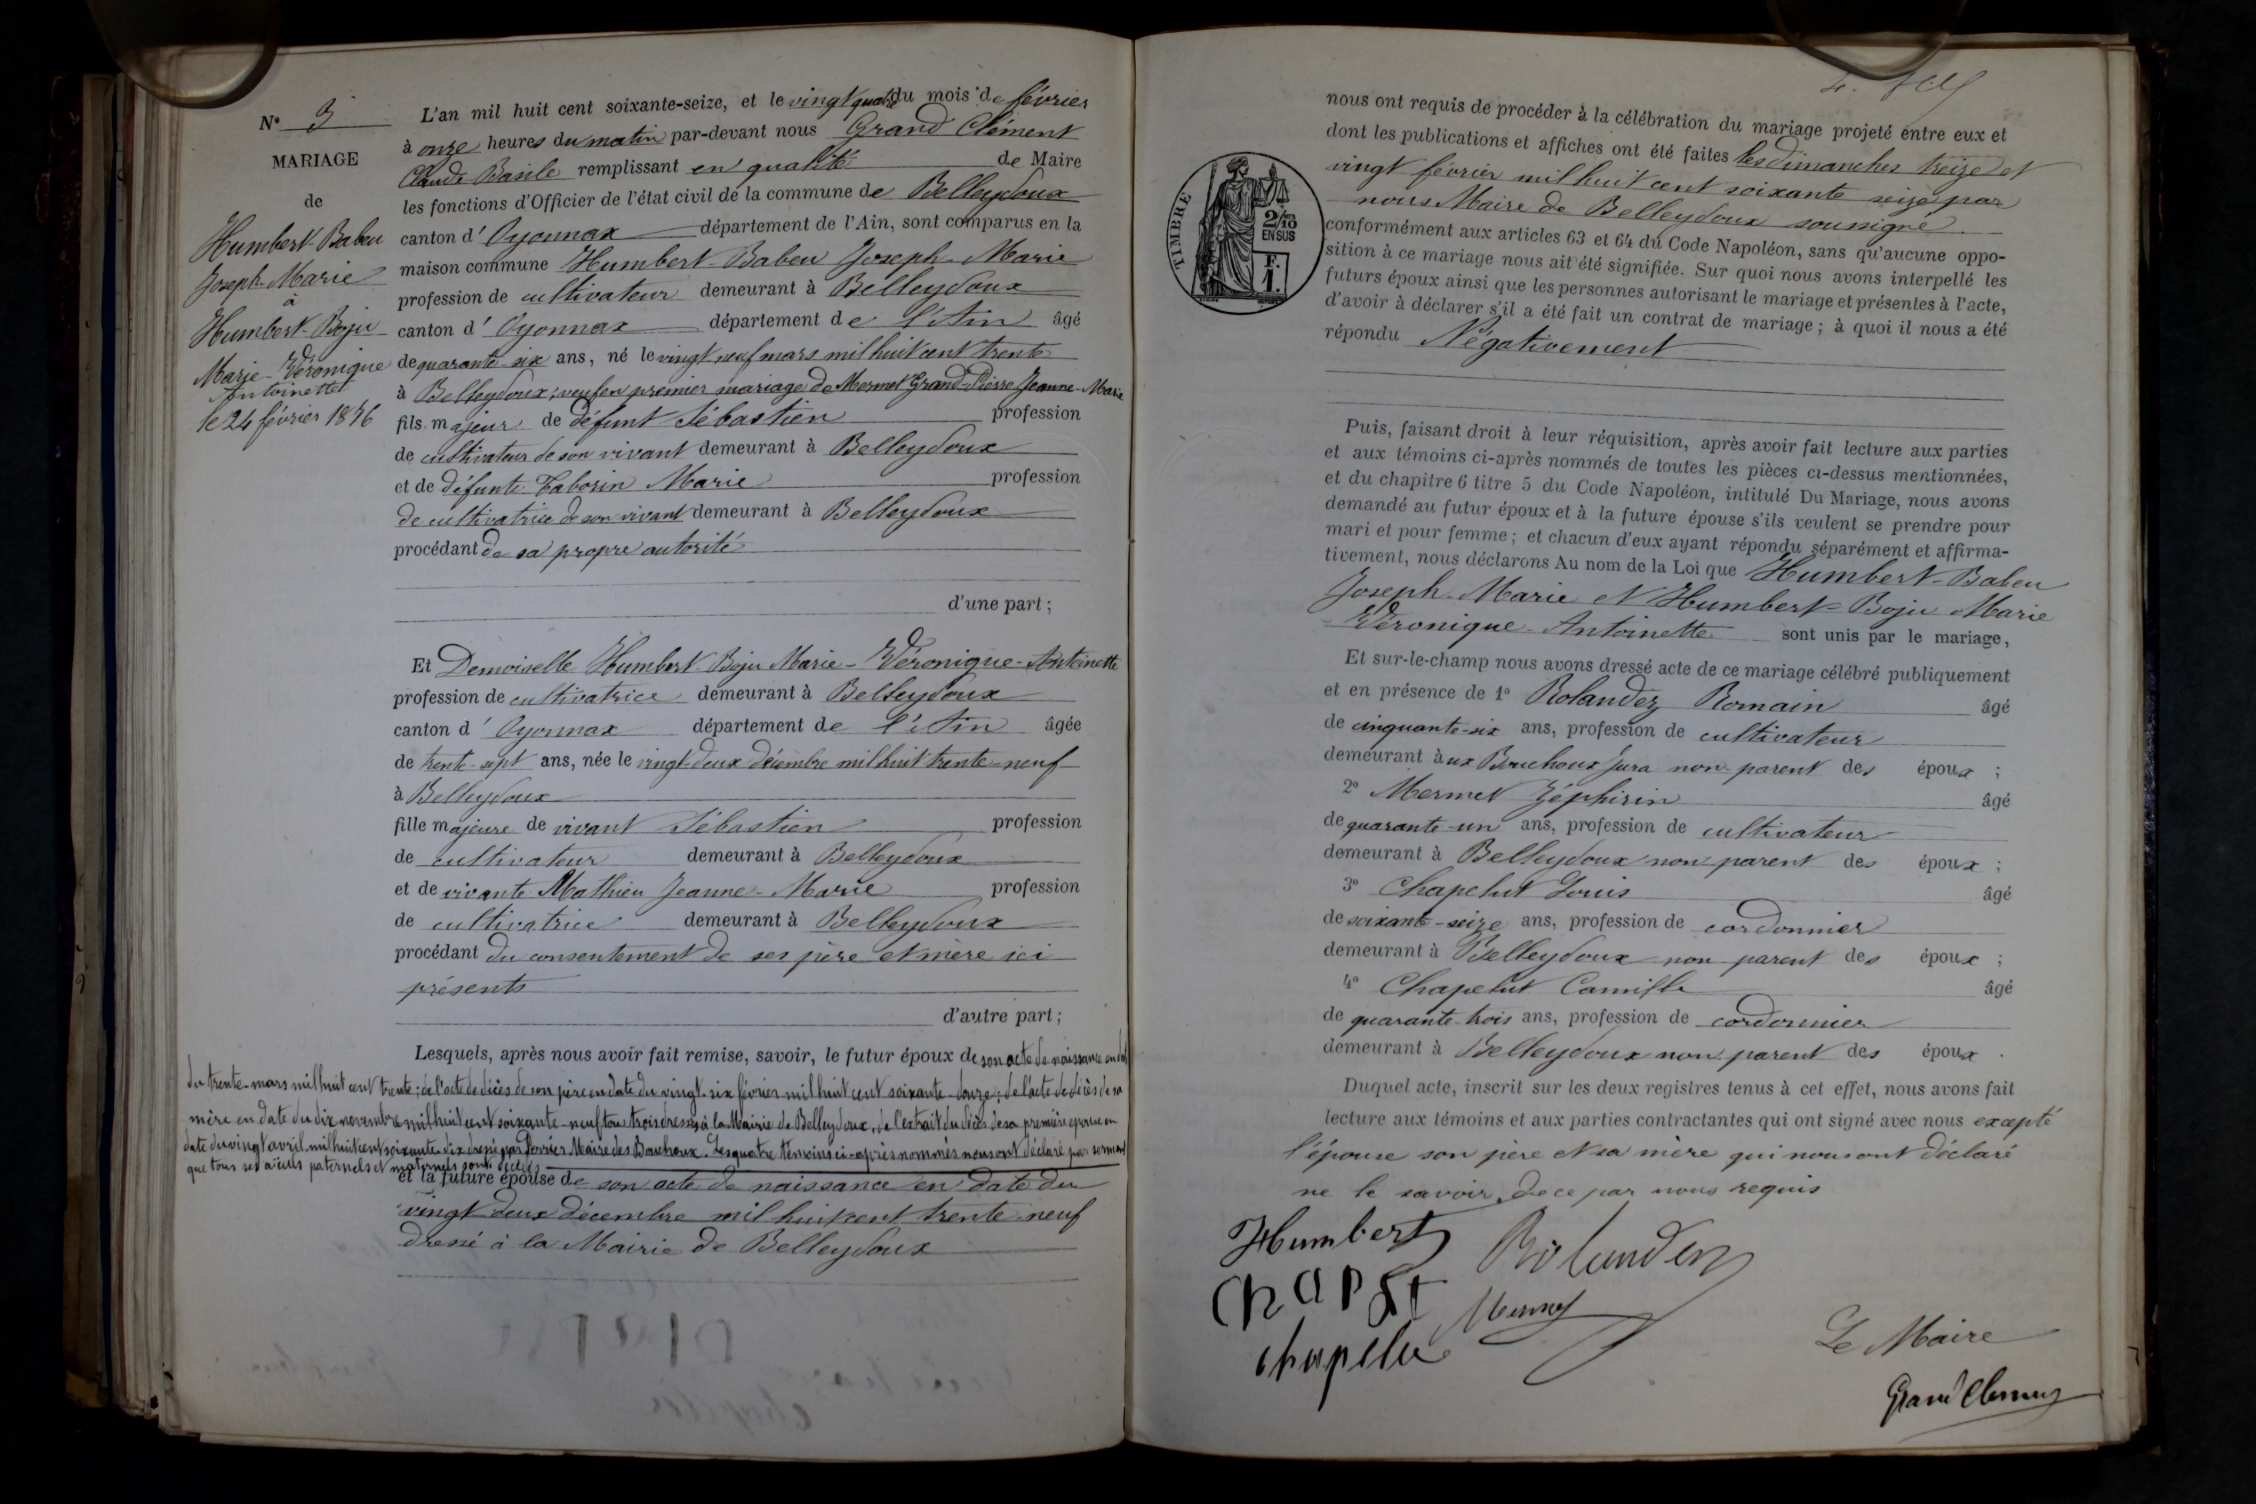 N° 3
MARIAGE
de
Humbert-Babeu
Joseph-Marie
à
Humbert-Boju
Marie-Véronique
Antoinette
le 24 février 1876
L'an mil huit cent soixante-seize, et le vingt quatre du mois de février
à onze heures du matin par-devant nous Grand Clément
Claude Basile remplissant en qualité de Maire
les fonctions d'Officier de l'état civil de la commune de Belleydoux
canton d'Oyonnax département de l'Ain, sont comparus en la
maison commune Humbert-Babeu Joseph-Marie
profession de cultivateur demeurant à Belleydoux
canton d'Oyonnax département de l'Ain âgé
de quarante six ans, né le vingt neuf mars mil huit cent trente
à Belleydoux; veuf en premier mariage de Mermet Grand-Pierre Jeanne-Marie
fils majeur de défunt Sébastien profession
de cultivateur de son vivant demeurant à Belleydoux
et de défunte Taborin Marie profession
de cultivatrice de son vivant demeurant à Belleydoux
procédant de sa propre autorité
d'une part;
Et Demoiselle Humbert-Boju Marie-Véronique-Antoinette
profession de cultivatrice demeurant à Belleydoux
canton d'Oyonnax département de l'Ain âgée
de trente-sept ans, née le vingt-deux décembre mil huit trente-neuf
à Belleydoux
fille majeure de vivant Sébastien profession
de cultivateur demeurant à Belleydoux
et de vivante Mathieu Jeanne-Marie profession
de cultivatrice demeurant à Belleydoux
procédant du consentement de ses père et mère ici
présents
d'autre part;
Lesquels, après nous avoir fait remise, savoir, le futur époux de son acte de naissance en date
du trente-mars mil huit cent trente; de l'acte de décès de son père en date du vingt-six février mil huit cent soixante-douze; de l'acte de décès de sa
mère en date du dix novembre mil huit cent soixante-neuf tou trois dressés à la Mairie de Belleydoux, de l'extrait du décès de sa première épouse en
date du vingt avril mil huit cent soixante-dix dressé par Perrier Maire des Bouchoux. Les quatre témoins ci-après nommés nous ont déclaré par serment
que tous ses aïeuls paternels et maternels sont décédés
et la future épouse de son acte de naissance en date du
vingt deux décembre mil huit cent trente-neuf
dressé à la Mairie de Belleydoux
TIMBRE
2/10
EN SUS
F.
1.
nous ont requis de procéder à la célébration du mariage projeté entre eux et
dont les publications et affiches ont été faites les dimanches treize et
vingt février mil huit cent soixante seize par
nous Maire de Belleydoux soussigné
conformément aux articles 63 et 64 du Code Napoléon, sans qu'aucune oppo-
sition à ce mariage nous ait été signifiée. Sur quoi nous avons interpellé les
futurs époux ainsi que les personnes autorisant le mariage et présentes à l'acte,
d'avoir à déclarer s'il a été fait un contrat de mariage; à quoi il nous a été
répondu Négativement
Puis, faisant droit à leur réquisition, après avoir fait lecture aux parties
et aux témoins ci-après nommés de toutes les pièces ci-dessus mentionnées,
et du chapitre 6 titre 5 du Code Napoléon, intitulé Du Mariage, nous avons
demandé au futur époux et à la future épouse s'ils veulent se prendre pour
mari et pour femme; et chacun d'eux ayant répondu séparément et affirma-
tivement, nous déclarons Au nom de la Loi que Humbert-Babeu
Joseph-Marie et Humbert-Boju Marie
Véronique-Antoinette sont unis par le mariage,
Et sur-le-champ nous avons dressé acte de ce mariage célébré publiquement
et en présence de 1° Rolandez Romain âgé
de cinquante-six ans, profession de cultivateur
demeurant aux Bouchoux Jura non-parent des époux;
2° Mermet Zéphirin âgé
de quarante-un ans, profession de cultivateur
demeurant à Belleydoux non parent des époux;
3° Chapelut Louis âgé
de soixante-seize ans, profession de cordonnier
demeurant à Belleydoux non parent des époux;
4° Chapelut Camille âgé
de quarante-trois ans, profession de cordonnier
demeurant à Belleydoux non parent des époux.
Duquel acte, inscrit sur les deux registres tenus à cet effet, nous avons fait
lecture aux témoins et aux parties contractantes qui ont signé avec nous excepté
l'épouse son père et sa mère qui nous ont déclaré
ne le savoir de ce par nous requis
Humbert Rolandez
Mermet
chapelu
Le Maire
Grand Clément